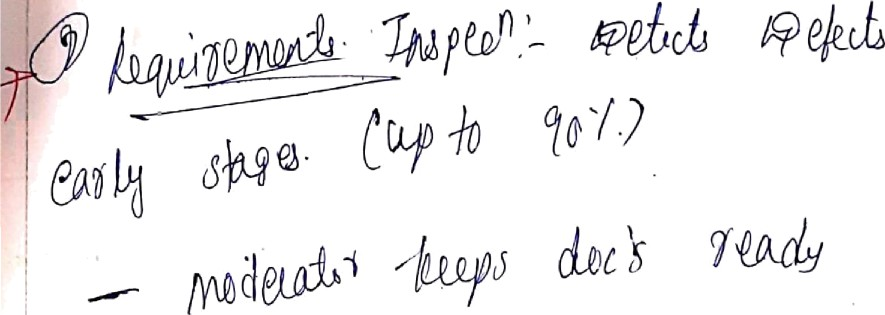 ① Requirements. Inspecⁿ:- Detects Defects
early stages. (up to 90%)
- moderator keeps doc's ready